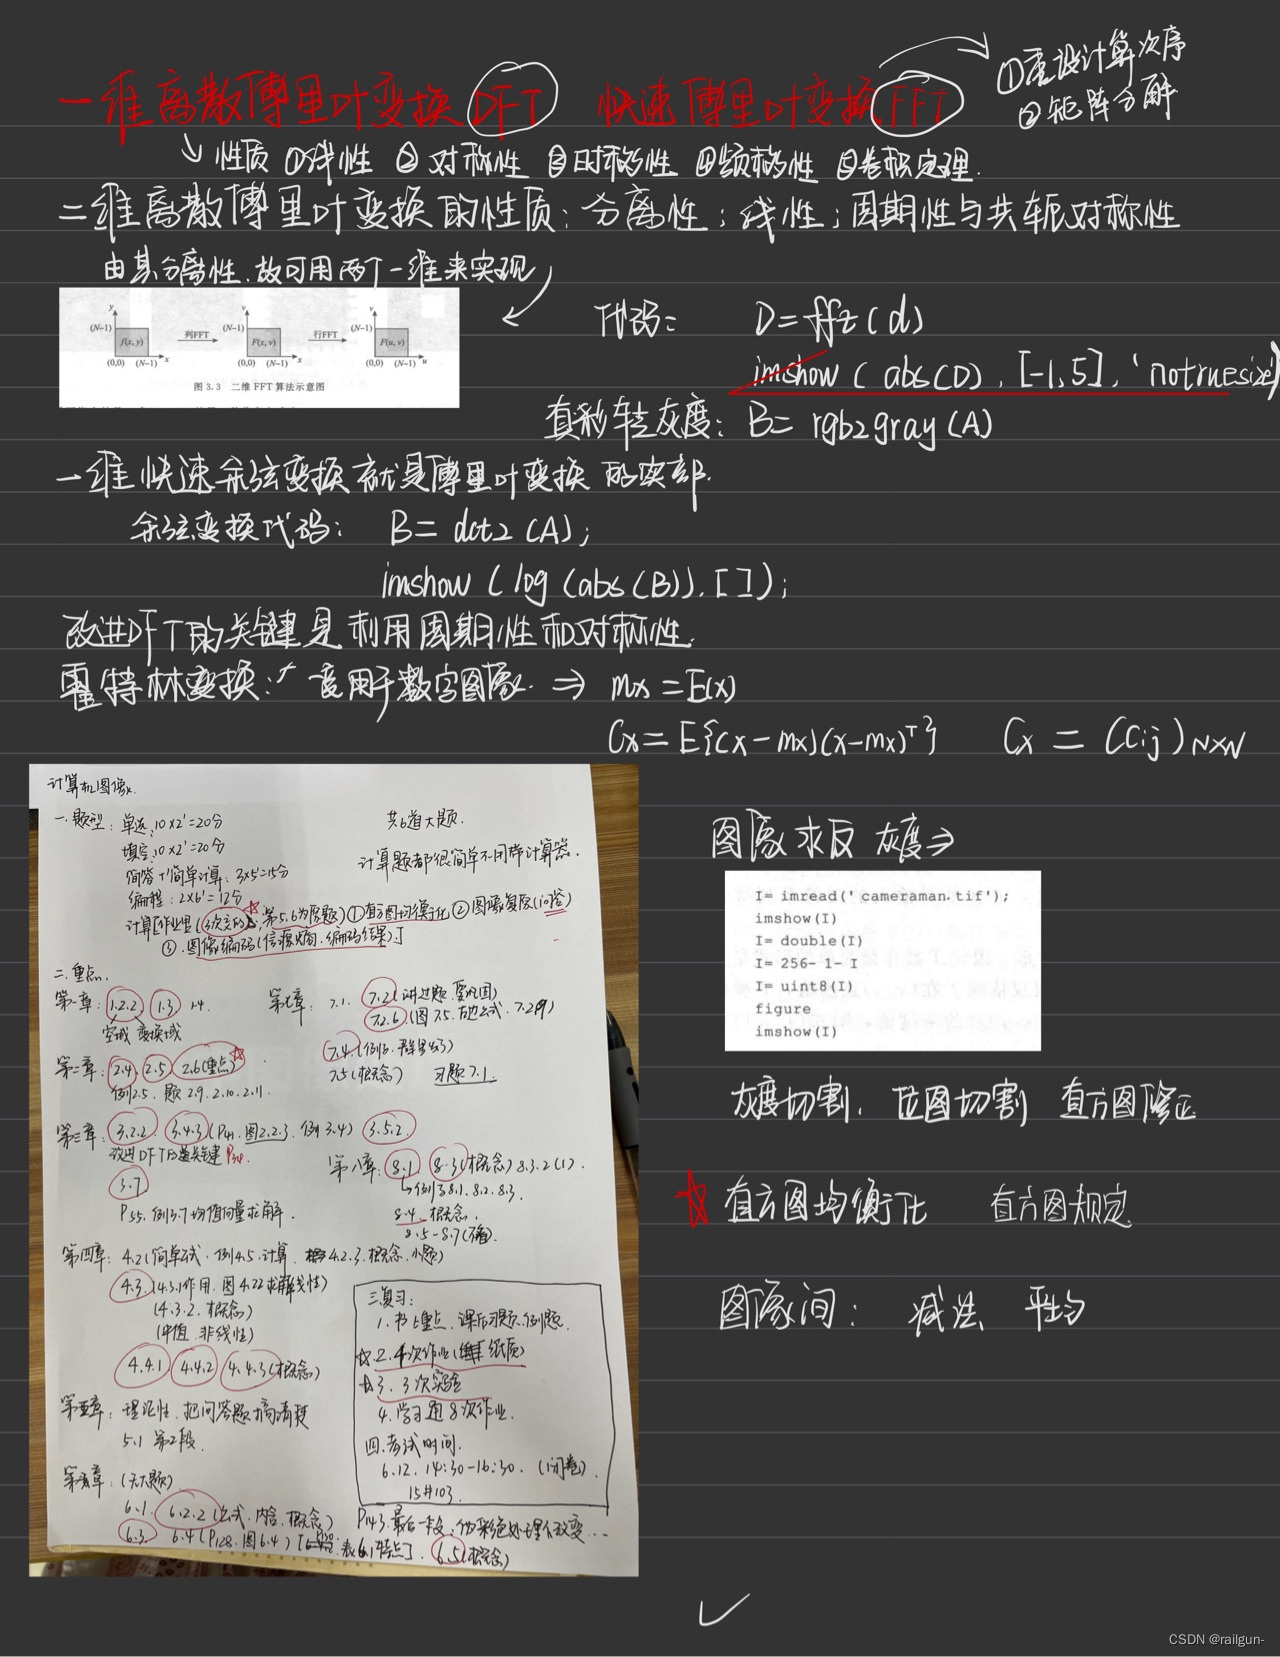 一维离散傅里叶变换 DFT 快速傅里叶变换 FFT
①重设计算次序
②矩阵分解
性质 ①线性 ②对称性 ③时移性 ④频移性 ⑤卷积定理.
二维离散傅里叶变换的性质: 分离性; 线性; 周期性与共轭对称性
由其分离性.故可用两个一维来实现
y (N-1) f(x,y) (0,0) (N-1) x 列FFT v (N-1) F(x,v) (0,0) (N-1) x 行FFT v (N-1) F(u,v) (0,0) (N-1) u
图 3.3 二维 FFT 算法示意图
代码: D=fft(d)
imshow(abs(D),[-1,5],'notruesize')
真彩转灰度: B= rgb2gray(A)
一维快速余弦变换就是傅里叶变换的实部.
余弦变换代码: B= dct2(A);
imshow(log(abs(B)),[]);
改进DFT的关键是利用周期性和对称性.
霍特林变换: 用于数字图像 ⇒ mx=E(x)
Cx=E{(x-mx)(x-mx)ᵀ} Cx = (Cij)N×N
计算机图像
一.题型: 单选:10×2'=20分 共6道大题.
填空:10×2'=20分
计算题都很简单不用带计算器.
简答+简单计算: 3×5'=15分
编程: 2×6'=12分
计算[作业里(3次交的),第5.6为原题)①直方图均衡化 ②图像复原(问答)
③.图像编码(信源熵.编码结果).]
二.重点.
第一章: 1.2.2 1.3 1.4
空域 变换域
第二章: 2.4 2.5 2.6(重点)
例2.5. 题 2.9. 2.10. 2.11.
第三章: 3.2.2 3.4.3(P41.图2.2.3.例3.4) 3.5.2
改进DFT的最关键 P34.
3.7
P55.例3.7均值向量求解.
第四章: 4.2(简单公式.例4.5.计算. 4.2.3.概念.小题)
4.3(4.3.1作用.图4.22求解线性)
(4.3.2.概念)
(中值.非线性)
4.4.1 4.4.2 4.4.3(概念)
第五章: 理论性.把问答题搞清楚
5.1 第2段.
第六章: (无大题)
6.1. 6.2.2(公式.内容.概念)
6.3. 6.4(P128.图6.4) 表6.1特点]. 6.5(概念)
第七章: 7.1. 7.2.2(讲过题.
7.2.6(图7.5.
7.4.(例
7.5(概念) 习题7.1.
第八章: 8.1 8.3(概念) 8.3.2(1).
例8.1. 8.2. 8.3.
8.4.概念.
8.5-8.7(不看).
三.复习:
1.书上重点.课后习题.例题.
2.4次作业( 纸质)
3.3次实验
4.学习通8次作业.
四.考试时间.
6.12. 14:30-16:30. (闭卷).
15#103.
P143.最后一段.伪彩色处理不改变...
图像求反 灰度⇒
I= imread('cameraman.tif');
imshow(I)
I= double(I)
I= 256- 1- I
I= uint8(I)
figure
imshow(I)
灰度切割. 位图切割 直方图修正
直方图均衡化 直方图规定
图像间: 减法 平均
CSDN @railgun-